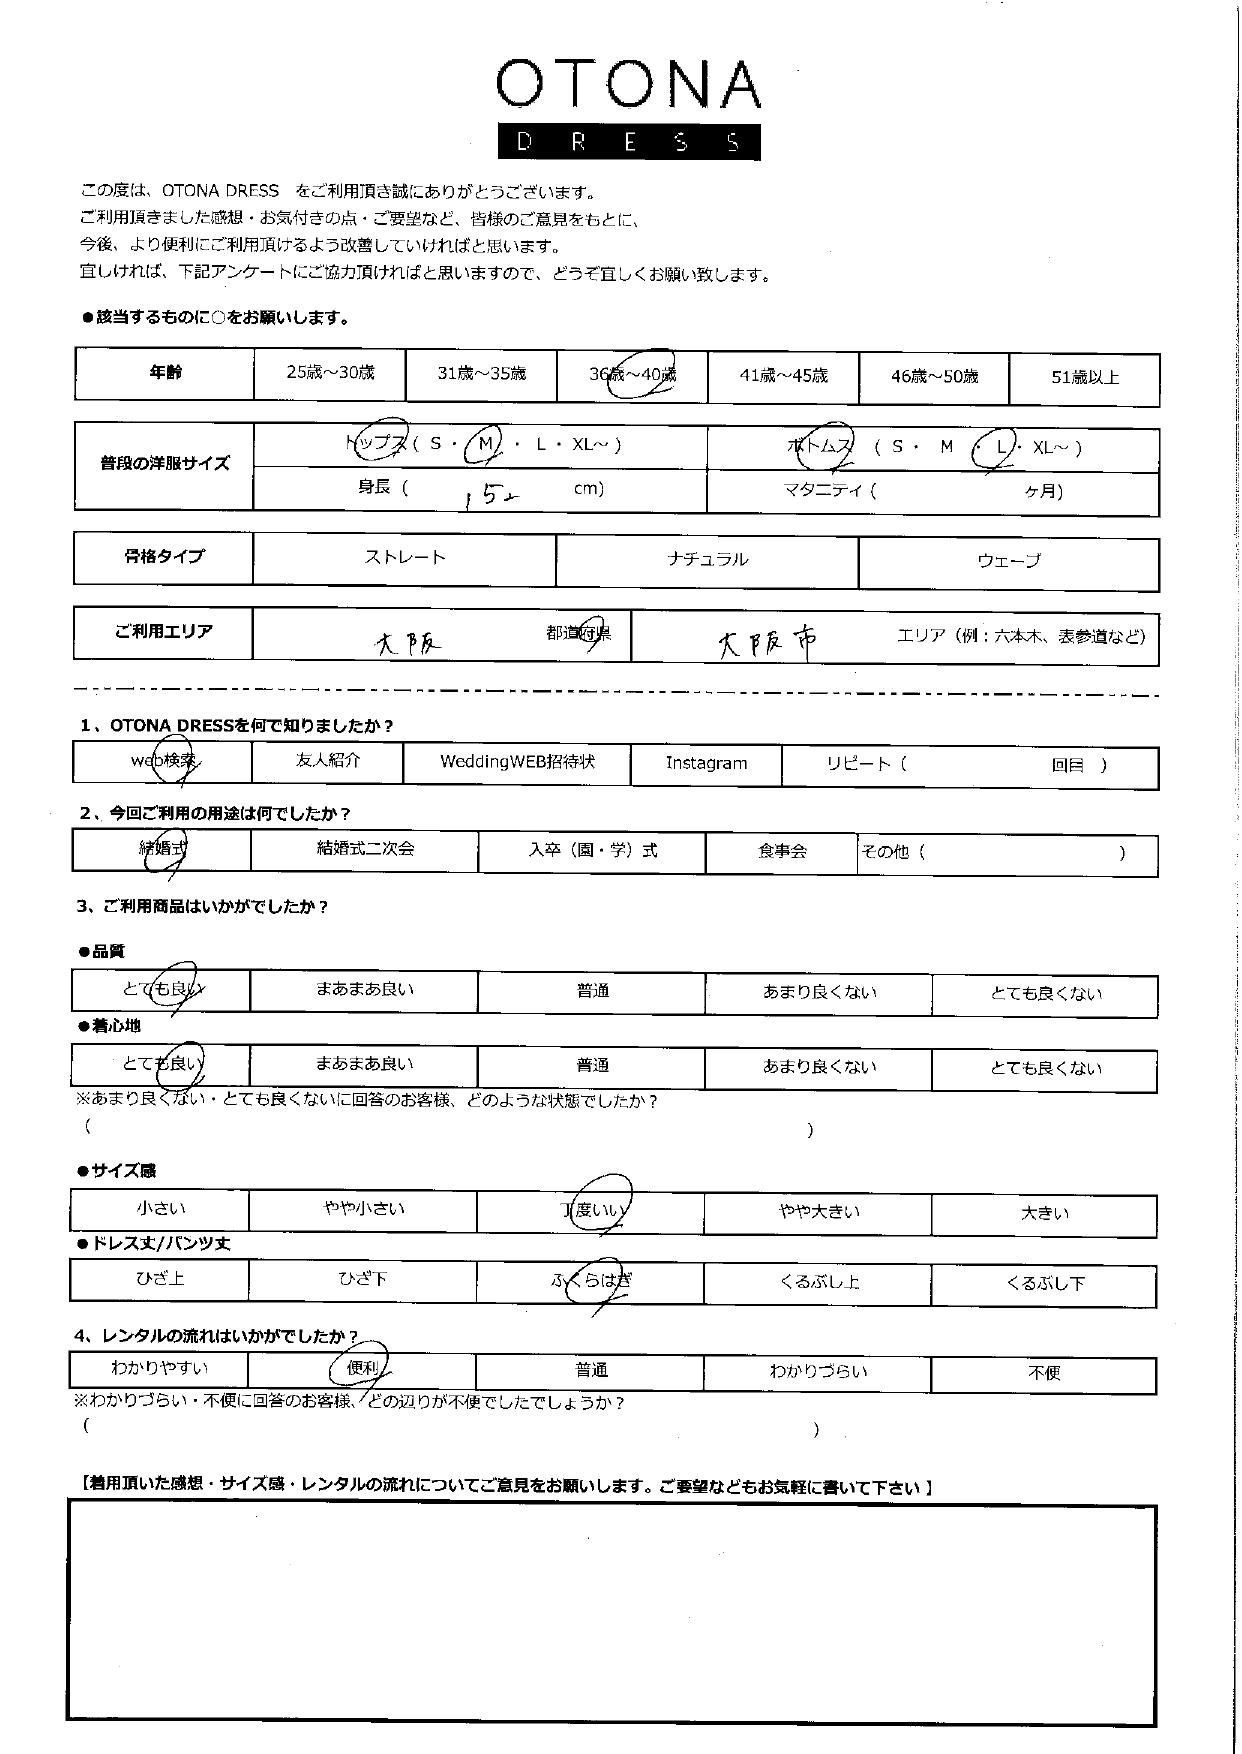 OTONA
DRESS
この度は、OTONA DRESS をご利用頂き誠にありがとうございます。
ご利用頂きました感想・お気付きの点・ご要望など、皆様のご意見をもとに、
今後、より便利にご利用頂けるよう改善していければと思います。
宜しければ、下記アンケートにご協力頂ければと思いますので、どうぞ宜しくお願い致します。
●該当するものに○をお願いします。
年齢 25歳～30歳 31歳～35歳 36歳～40歳 41歳～45歳 46歳～50歳 51歳以上
普段の洋服サイズ トップス( S ・ M ・ L ・ XL～ ) ボトムス ( S ・ M ・ L ・ XL～ )
身長 ( 152 cm) マタニティ ( ヶ月)
骨格タイプ ストレート ナチュラル ウェーブ
ご利用エリア 大阪 都道府県 大阪市 エリア（例：六本木、表参道など）
1、OTONA DRESSを何で知りましたか？
web検索 友人紹介 WeddingWEB招待状 Instagram リピート ( 回目 )
2、今回ご利用の用途は何でしたか？
結婚式 結婚式二次会 入卒（園・学）式 食事会 その他 ( )
3、ご利用商品はいかがでしたか？
●品質
とても良い まあまあ良い 普通 あまり良くない とても良くない
●着心地
とても良い まあまあ良い 普通 あまり良くない とても良くない
※あまり良くない・とても良くないに回答のお客様、どのような状態でしたか？
( )
●サイズ感
小さい やや小さい 丁度いい やや大きい 大きい
●ドレス丈/パンツ丈
ひざ上 ひざ下 ふくらはぎ くるぶし上 くるぶし下
4、レンタルの流れはいかがでしたか？
わかりやすい 便利 普通 わかりづらい 不便
※わかりづらい・不便に回答のお客様、どの辺りが不便でしたでしょうか？
( )
【着用頂いた感想・サイズ感・レンタルの流れについてご意見をお願いします。ご要望などもお気軽に書いて下さい 】